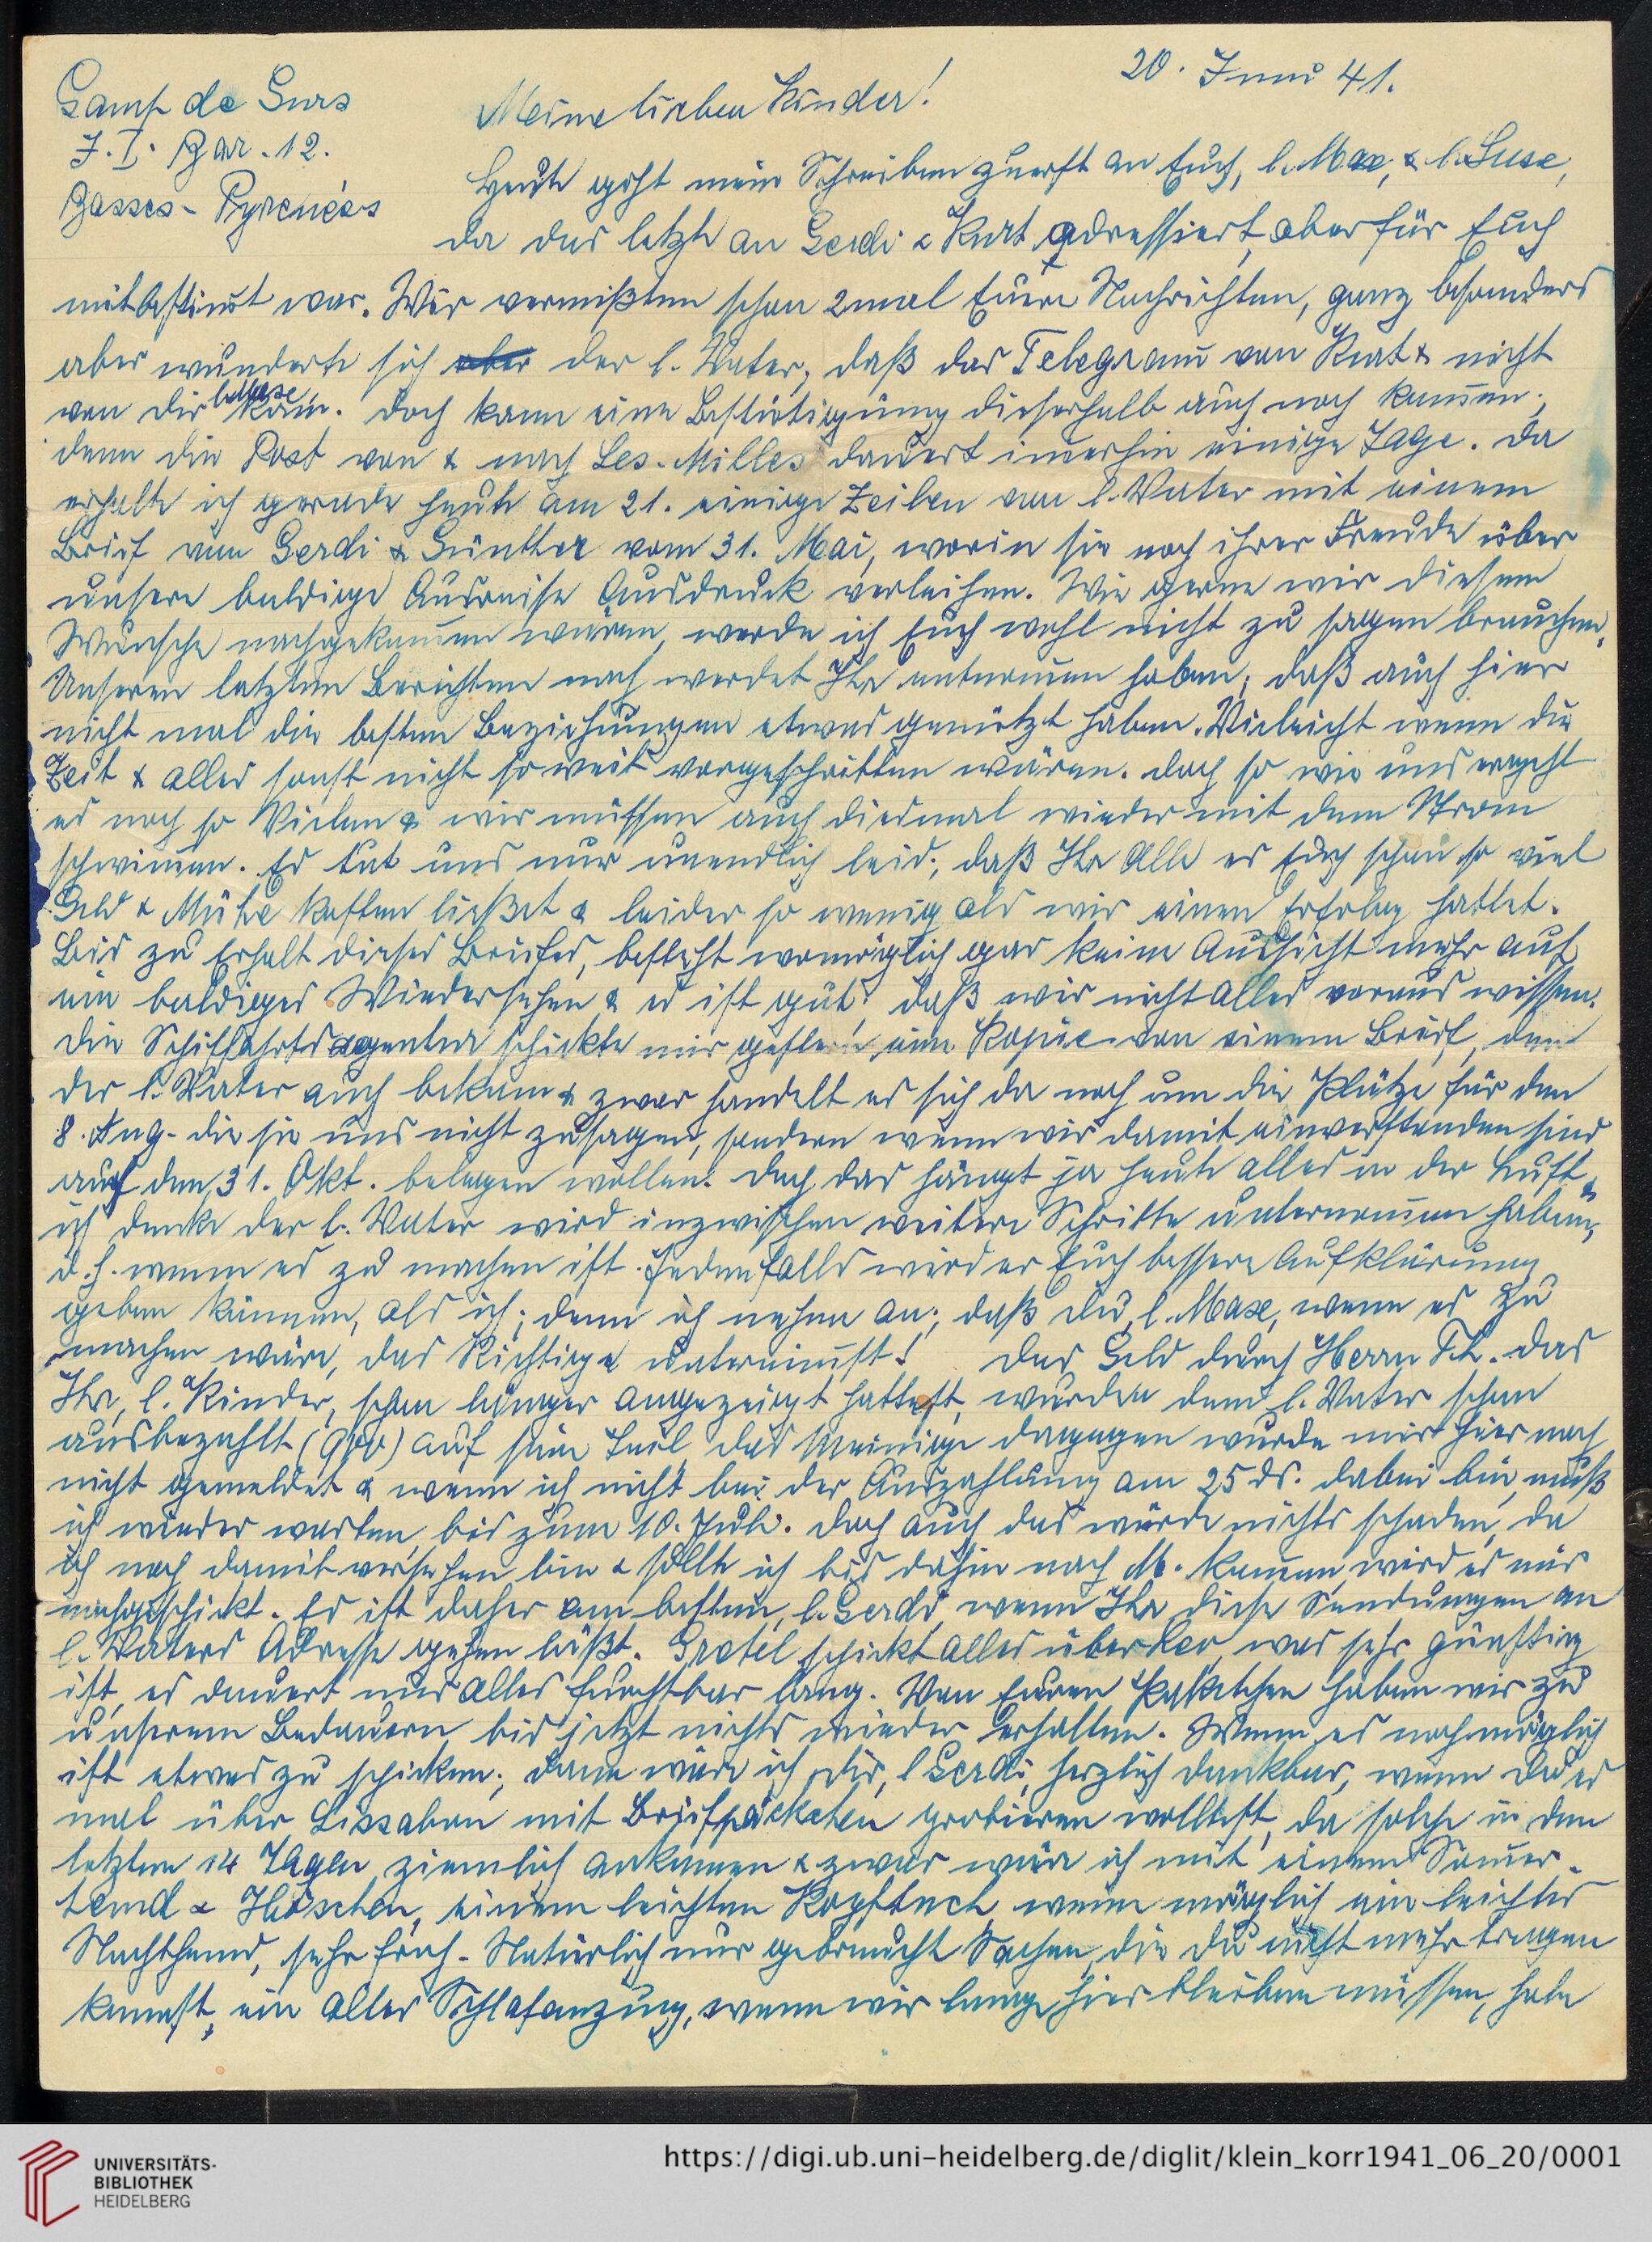 20. Juni 41.
Camp de Gurs
J. I. Bar. 12.
Basses-Pyrenées
Meine lieben Kinder!
Heute geht mein Schreiben zuerst an Euch, l. Max, & l. Suse,
da das letzte an Gerdi & Kurt adressiert, aber für Euch
mitbestimt war. Wir vermißten schon 2mal Euere Nachrichten, ganz besonders
aber wunderte sich aber der l. Vater, daß das Telegram von Kurt & nicht
von Dir l. Maxe kam. Doch kann eine Bestätigung dieserhalb auch noch kommen;
denn die Post von & nach Les-Milles dauert imerhin einige Tage. Da
erhalte ich gerade heute am 21. einige Zeilen vom l. Vater mit einem
Brief von Gerdi & Günther vom 31. Mai, worin sie noch ihrer Freude über
unsere baldige Ausreise Ausdruck verleihen. Wie gerne wir diesem
Wunsche nachgekommen wären, werde ich Euch wohl nicht zu sagen brauchen.
Unseren letzten Berichten nach werdet Ihr entnommen haben, daß auch hier
nicht mal die besten Beziehungen etwas genützt haben. Vieleicht wenn die
Zeit & alles sonst nicht so weit vorgeschritten wären. Doch so wie uns ergeht
es noch so Vielen & wir müssen auch diesmal wieder mit dem Strom
schwimmen. Es tut uns nur unendlich leid, daß Ihr Alle es Euch schon so viel
Geld & Mühe kosten ließet & leider so wenig als wir einen Erfolg hattet.
Bis zu Erhalt dieses Briefes, besteht womöglich gar keine Aussicht mehr auf
ein baldiges Wiedersehen & es ist gut, daß wir nicht alles voraus wissen.
Die Schiffahrtsagentur schickte mir gestern eine Kopie von einem Brief, den
der l. Vater auch bekam & zwar handelt es sich da noch um die Plätze für den
8. Aug. die sie uns nicht zusagen, sondern wenn wir damit einverstanden sind
auf den 31. Okt. belegen wollen. Doch das hängt ja heute alles in der Luft &
ich denke der l. Vater wird inzwischen weitere Schritte unternommen haben,
d. h. wenn es zu machen ist. Jedenfalls wird er Euch bessere Aufklärung
geben können, als ich; denn ich nehme an, daß Du, l. Maxe, wenn es zu
machen wäre, das Richtige unternimmst! Das Geld durch Herrn Th. das
Ihr, l. Kinder, schon länger angezeigt hattest, wurden dem l. Vater schon
ausbezahlt (900) auf sein Teil das Meinige dagegen wurde mir hier noch
nicht gemeldet & wenn ich nicht bei der Auszahlung am 25 ds. dabei bin, muß
ich wieder warten, bis zum 10. Juli. Doch auch das würde nichts schaden, da
ich noch damit versehen bin & sollte ich bis dahin nach M. kommen, wird es mir
nachgeschickt. Es ist daher am besten, l. Gerdi, wenn Ihr diese Sendungen an
l. Vaters Adresse gehen läßt. Gretel schickt alles über Leo, was sehr günstig
ist, es dauert nur alles furchtbar lang. Von Euren Paketchen haben wir zu
unserem Bedauern bis jetzt nichts wieder erhalten. Wenn es noch möglich
ist etwas zu schicken, dann wäre ich Dir, l Gerdi, herzlich dankbar, wenn Du es
mal über Lissabon mit Briefpäckchen probieren wolltest, da solche in den
letzten 14 Tagen ziemlich ankamen & zwar wäre ich mit einem Sommer-
hemd & Höschen, einem leichten Kopftuch wenn möglich ein leichtes
Nachthemd, sehr froh. Natürlich nur gebraucht Sachen, die Du nicht mehr tragen
kannst, ein altes Schlafanzug, wenn wir lange hier bleiben müssen, habe
UNIVERSITÄTS-
BIBLIOTHEK
HEIDELBERG
https://digi.ub.uni-heidelberg.de/diglit/klein_korr1941_06_20/0001